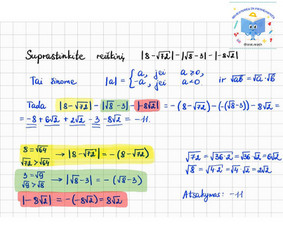 Suprastinkite reiškinį |8-√72|-|√8-3|-|-8√2|
Tai žinome |a| = { a, jei a≥0, -a, jei a<0 ir √ab = √a·√b
Tada |8-√72| - |√8-3| - |-8√2| = -(8-√72) - (-(√8-3)) - 8√2 =
= -8+6√2 + 2√2 -3 -8√2 = -11.
8 = √64
√72 > √64 → |8-√72| = -(8-√72)
3 = √9
√9 > √8 → |√8-3| = -(√8-3)
|-8√2| = -(-8√2) = 8√2
√72 = √36·2 = √36·√2 = 6√2
√8 = √4·2 = √4·√2 = 2√2
Atsakymas: -11